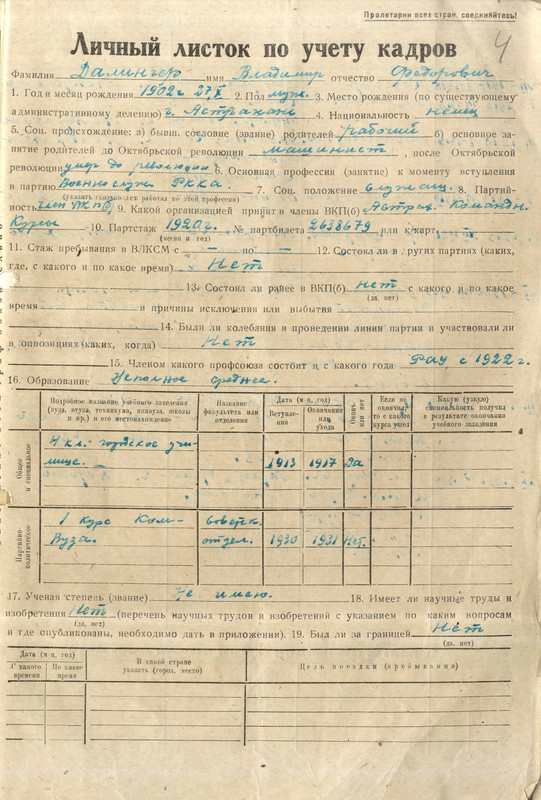 Пролетарии всех стран, соединяйтесь!
4
Личный листок по учету кадров
Фамилия Далингер имя Владимир отчество Федорович
1. Год и месяц рождения 1902 г 27/X 2. Пол муж. 3. Место рождения (по существующему
административному делению) г. Астрахань 4. Национальность немец
5. Соц. происхождение: а) бывш. сословие (звание) родителей рабочий б) основное за-
нятие родителей до Октябрьской революции машинист, после Октябрьской
революции умер до революции 6. Основная профессия (занятие) к моменту вступления
в партию Военнослуж. РККА 7. Соц. положение служащ. 8. Партий-
(указать сколько лет работал по этой профессии)
ность член ВКПб 9. Какой организацией принят в члены ВКП(б) Астрах. Командн.
Курсы 10. Партстаж 1920 г. № партбилета 2638679 или к/карт.
(месяц и год)
11. Стаж пребывания в ВЛКСМ с — по — 12. Состоял ли в других партиях (каких,
где, с какого и по какое время) Нет
13. Состоял ли ранее в ВКП(б) нет с какого и по какое
(да, нет)
время и причины исключения или выбытия
14. Были ли колебания в проведении линии партии и участвовали ли
в оппозициях (каких, когда) Нет
15. Членом какого профсоюза состоит и с какого года РАУ с 1922 г.
16. Образование Неполное среднее.
Подробное название учебного заведения (вуза, втуза, техникума, комвуза, школы и пр.) и его местонахождение
Название факультета или отделения
Дата (м-ц, год)
Вступления
Окончания или ухода
Оконч. или нет
Если не окончил, то с какого курса ушел
Какую (узкую) специальность получил в результате окончания учебного заведения
Общее и специальное
4 кл. городское учи-
лище. — 1913 1917 Да
Партийно-политическое
1 курс Ком- Советск.
Вуза. отдел. 1930 1931 Нет.
17. Ученая степень (звание) Не имею. 18. Имеет ли научные труды и
изобретения Нет (перечень научных трудов и изобретений с указанием по каким вопросам
(да, нет)
и где опубликованы, необходимо дать в приложении). 19. Был ли за границей Нет
(да, нет)
Дата (м-ц, год)
С какого времени
По какое время
В какой стране указать (город, место)
Цель поездки (пребывания)